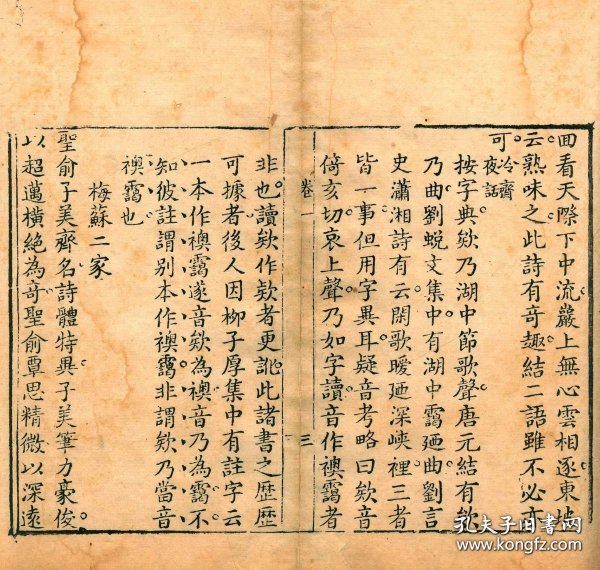 回看天際下中流巖上無心雲相逐東坡
云熟味之此詩有奇趣結二語雖不必亦
可冷齋夜話
按字典欸乃湖中節歌聲唐元結有欸
乃曲劉蛻文集中有湖中靄廼曲劉言
史瀟湘詩有云閑歌曖廼深峽裡三者
皆一事但用字異耳疑音考略曰欸音
倚亥切哀上聲乃如字讀音作襖靄者
卷一
三
非也讀欸作欵者更訛此諸書之歷歷
可據者後人因柳子厚集中有註字云
一本作襖靄遂音欸為襖音乃為靄不
知彼註謂别本作襖靄非謂欸乃當音
襖靄也
梅蘇二家
聖俞子美齊名詩體特異子美筆力豪俊
以超邁橫絕為奇聖俞覃思精微以深遠
孔夫子旧書网
www.kongfz.com